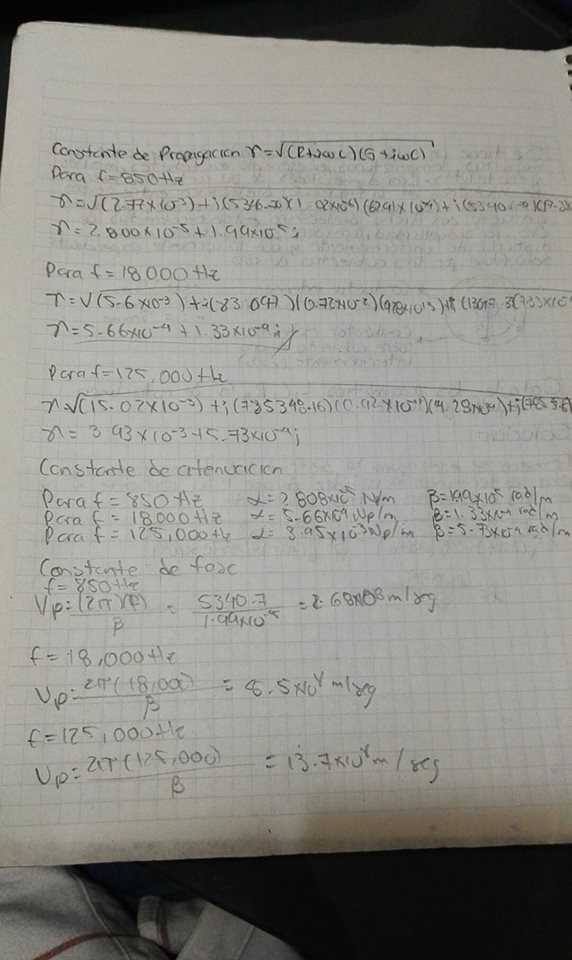 Constante de Propagacion γ=√(R+iωL)(G+iωC)
Para f=850Hz
γ=√(2.77x10⁻³)+i(5340.70)(1.02x10⁻⁶)(6.291x10⁻⁹)+i(5340
γ=2.800x10⁻⁵+1.99x10⁻⁵i
Para f=18000Hz
γ=√(5.6x10⁻³)+i(83.097)(0.72x10⁻²)
γ=5.66x10⁻⁴+1.33x10⁻⁴i
Para f=125,000Hz
γ=√(15.02x10⁻³)+i(785398.16)
γ=3.93x10⁻³+5.73x10⁻⁴i
Constante de atenuacion
Para f=850Hz α=2.808x10⁻⁵ N/m β=1.99x10⁻⁵ rad/m
Para f=18,000Hz α=5.66x10⁻⁴ Np/m β=1.33x10⁻⁴ rad/m
Para f=125,000Hz α=3.95x10⁻³ Np/m β=5.73x10⁻⁴ rad/m
Constante de fase
f=850Hz
Vp=(2π)(f)/β = 5340.7/1.99x10⁻⁵ = 2.68x10⁸ m/seg
f=18,000Hz
Vp=2π(18,000)/β = 8.5x10⁸ m/seg
f=125,000Hz
Vp=2π(125,000)/β = 13.7x10⁸ m/seg